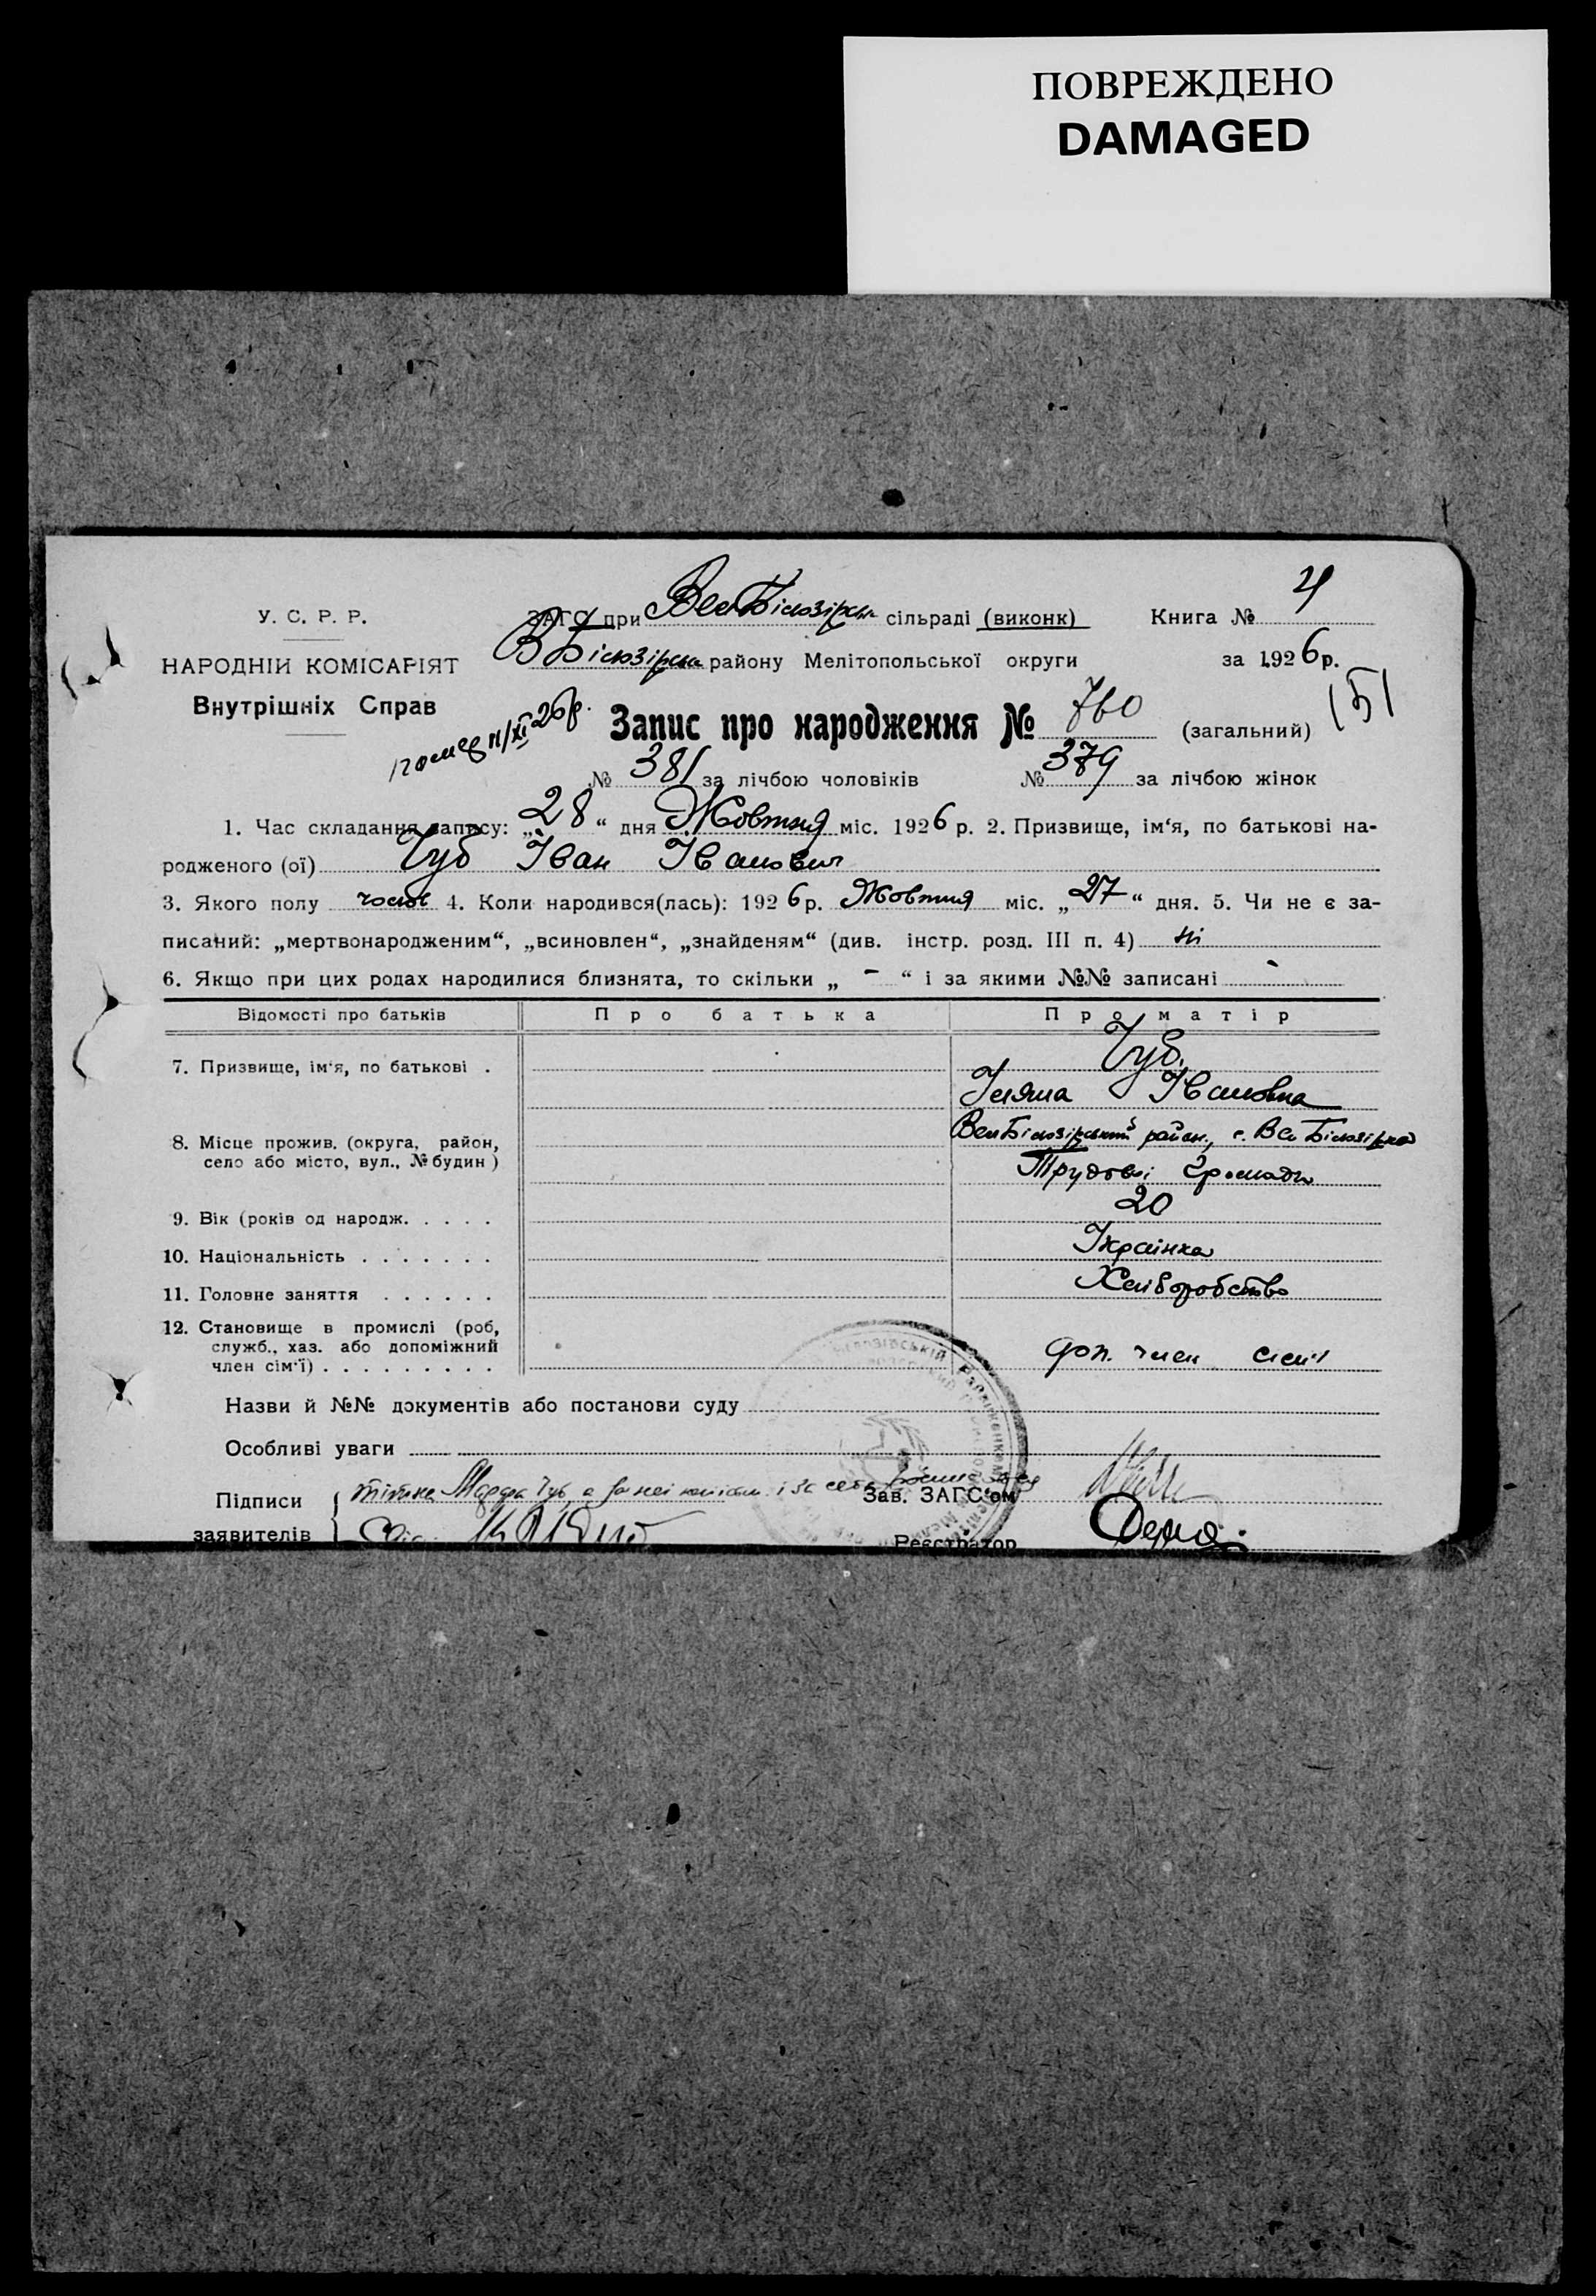 ПОВРЕЖДЕНО
DAMAGED
У. С. Р. Р.
НАРОДНІЙ КОМІСАРІЯТ
Внутрішніх Справ
ЗАГС при Вел Білозірськ сільраді (виконк) Книга № 4
В Білозірськ району Мелітопольської округи за 1926 р.
151
11/XI 26 р.
Запис про народження № 760 (загальний)
№ 381 за лічбою чоловіків № 379 за лічбою жінок
1. Час складання запису: „28“ дня Жовтня міс. 1926 р. 2. Призвище, ім‘я, по батькові на-
родженого (ої) Чуб Іван Іванович
3. Якого полу чолов 4. Коли народився(лась): 1926 р. Жовтня міс. „27“ дня. 5. Чи не є за-
писаний: „мертвонародженим“, „всиновлен“, „знайденям“ (див. інстр. розд. III п. 4) ні
6. Якщо при цих родах народилися близнята, то скільки „ - “ і за якими №№ записані -
Відомості про батьків Про батька Про матір
7. Призвище, ім‘я, по батькові . Чуб
Івановна
8. Місце прожив. (округа, район, село або місто, вул., № будин ) Вел Білозірський район, с. Вел Білозірка
Трудові Громади
9. Вік (років од народж. . . . . 20
10. Національність . . . . . . . Українка
11. Головне заняття . . . . . . Хліборобство
12. Становище в промислі (роб, служб., хаз. або допоміжний член сім‘ї) . . . . . . . . . доп. член сім'ї
Назви й №№ документів або постанови суду
Особливі уваги
Підписи заявителів Марфа Чуб, а за неі і за себе
Зав. ЗАГС‘ом
Реєстратор